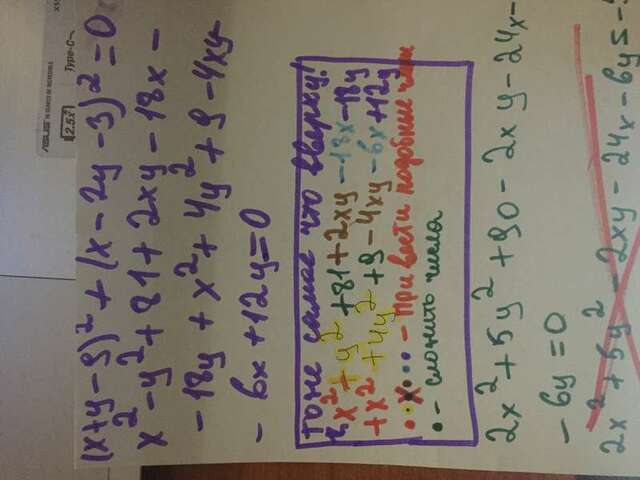 ASUS IN SEARCH OF INCREDIBLE
2.5x
Type-C
(x+y-9)² + (x-2y-3)² = 0
x² - y² + 81 + 2xy - 18x -
- 18y + x² + 4y² + 9 - 4xy -
- 6x + 12y = 0
тоже самое что вверху!
x² + y² + 81 + 2xy - 18x - 18y
+ x² + 4y² + 9 - 4xy - 6x + 12y
- Привести подобные член
- сложить числа
2x² + 5y² + 90 - 2xy - 24x -
- 6y = 0
2x² + 5y² - 2xy - 24x - 6y =